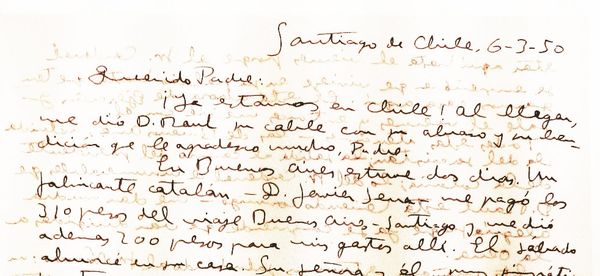 Santiago de Chile, 6-3-50
Querido Padre:
¡Ya estamos en Chile! Al llegar,
me dió D. Raul su cable con su abrazo y su ben-
dición que le agradezco mucho, Padre.
En Buenos Aires estuve dos dias. Un
fabricante catalán - D. Javier Serra - me pagó los
310 pesos del viaje Buenos Aires-Santiago y me dió
ademas 200 pesos para mis gastos allí. El sabado
almorcé en su casa. Su señora y él, muy